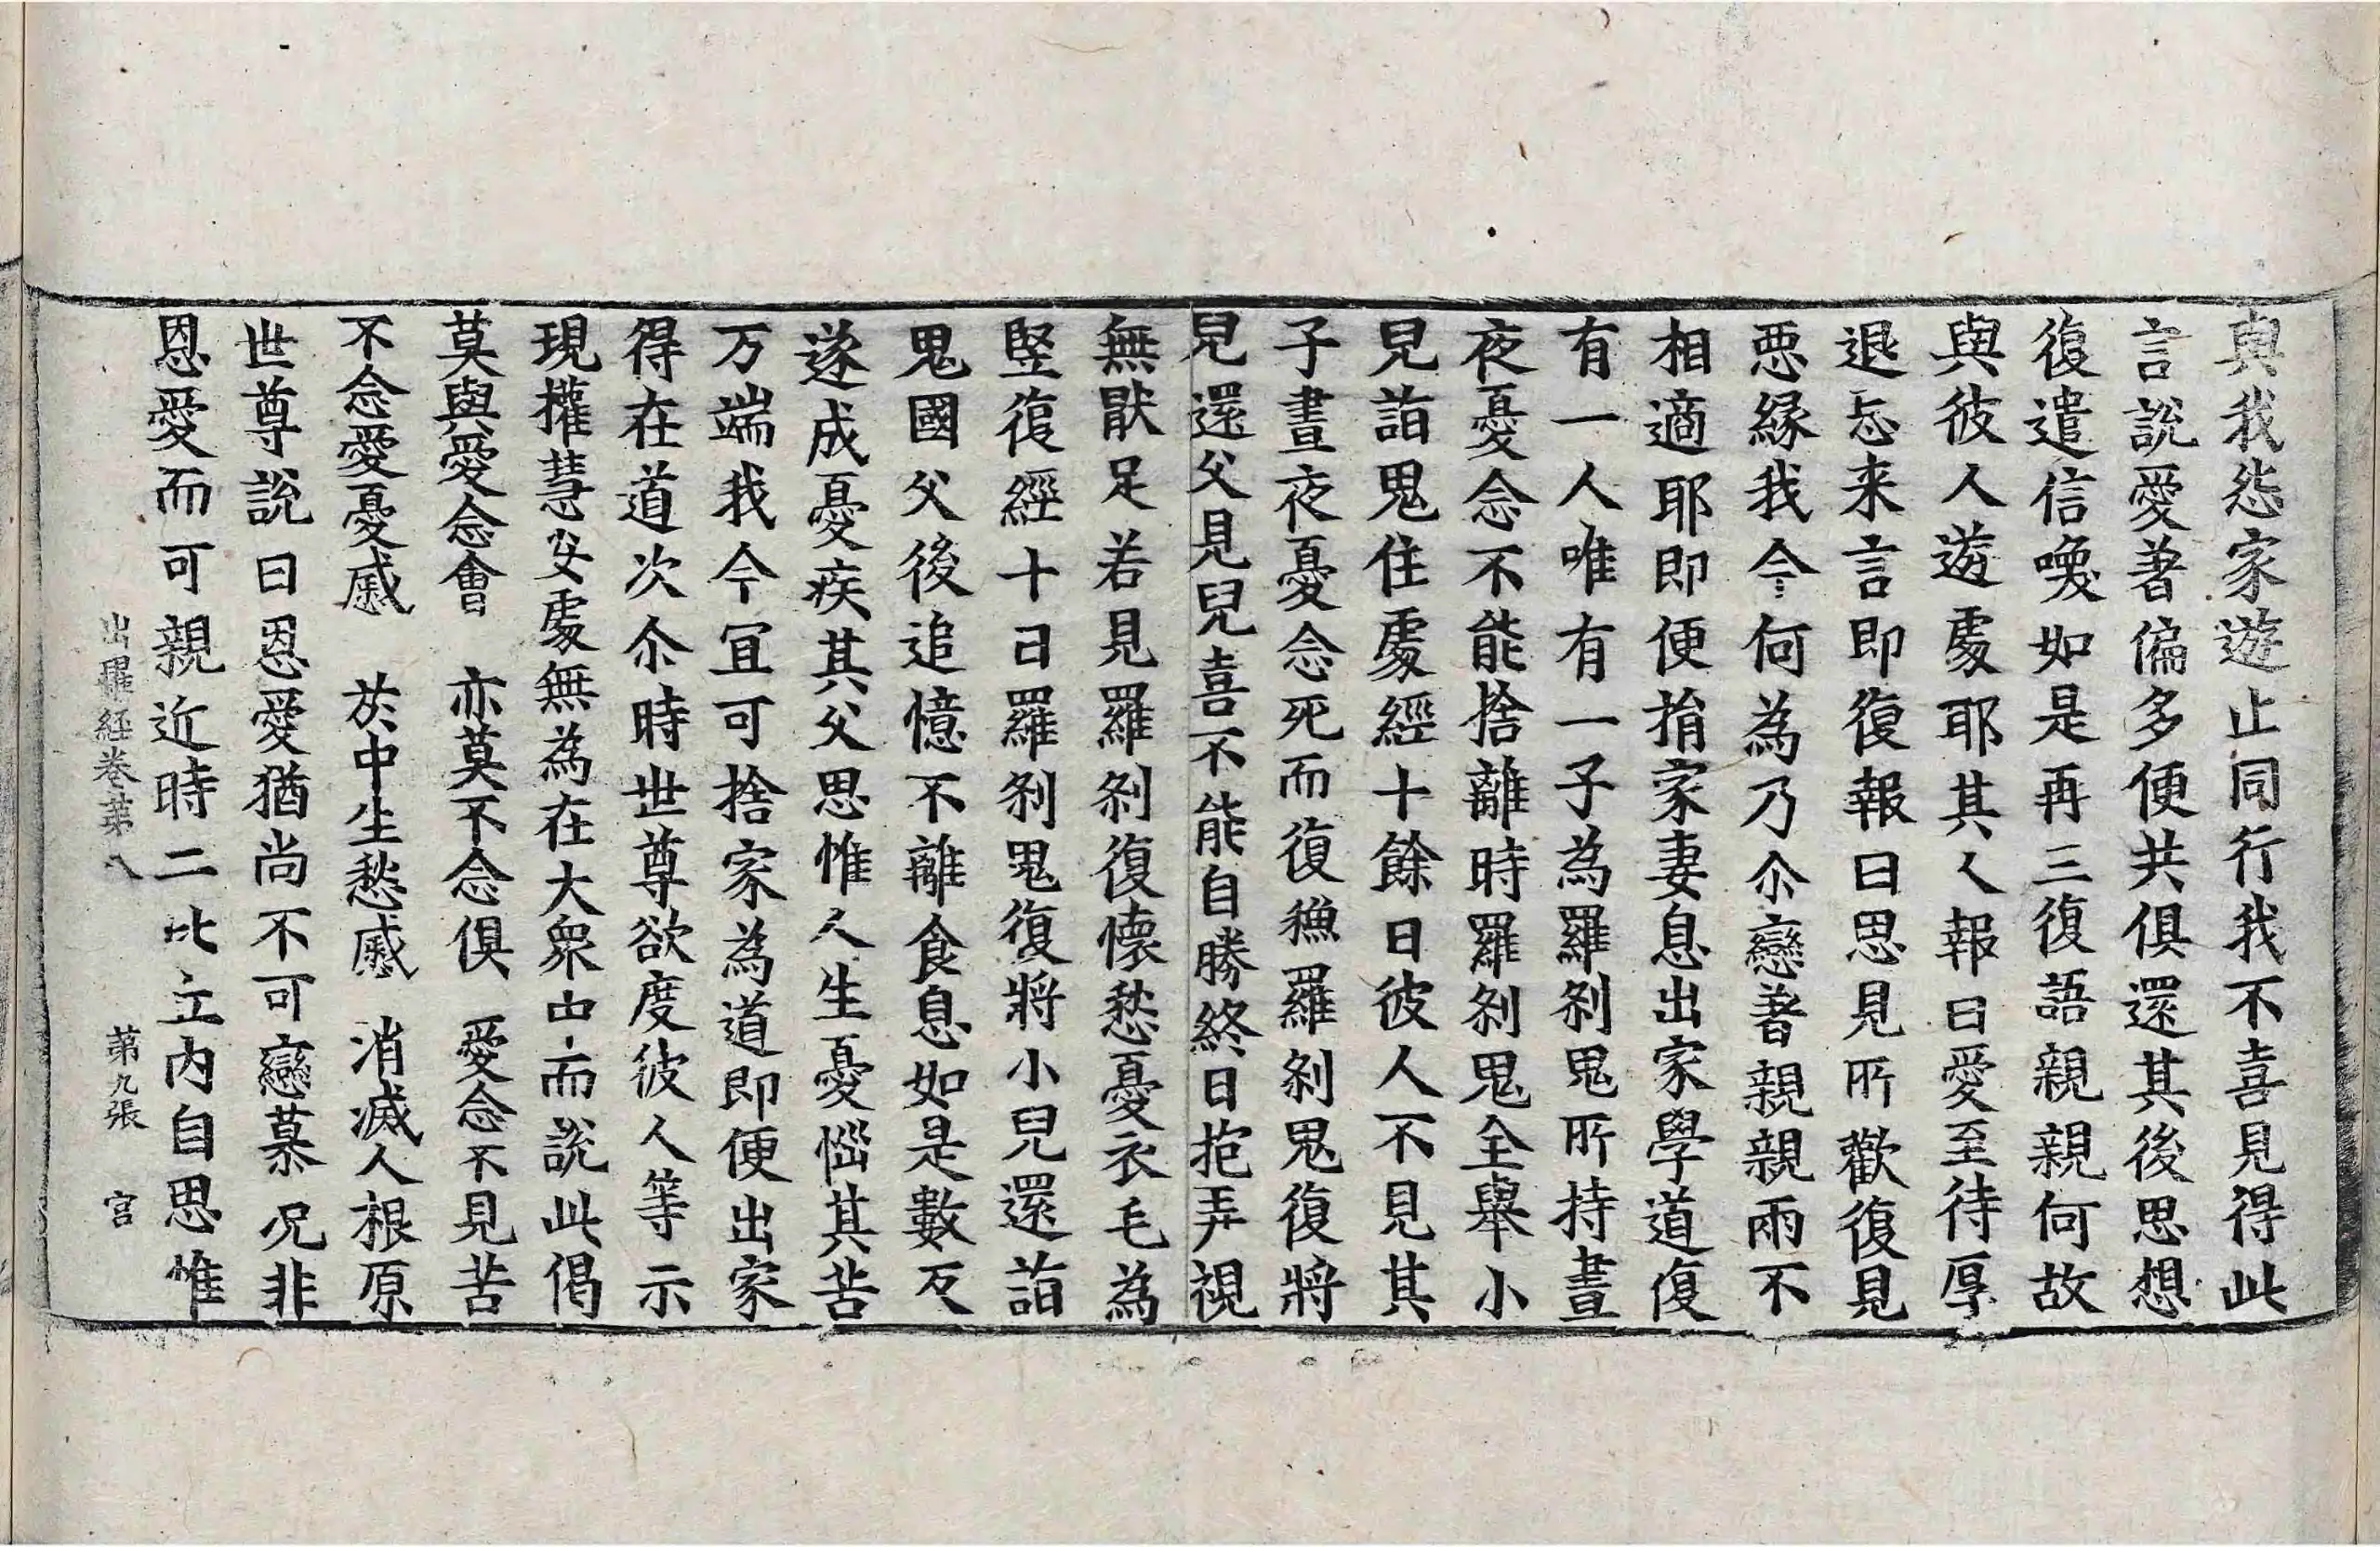 與我怨家遊止同行我不喜見得此
言說愛著偏多便共俱還其後思想
復遣信喚如是再三復語親親何故
與彼人遊處耶其人報曰愛至待厚
退忘来言即復報曰思見所歡復見
惡緣我今何為乃尒戀著親親兩不
相適耶即便捐家妻息出家學道復
有一人唯有一子為羅剎鬼所持晝
夜憂念不能捨離時羅剎鬼全舉小
兒詣鬼住處經十餘日彼人不見其
子晝夜憂念死而復穌羅剎鬼復將
兒還父見兒喜不能自勝終日抱弄視
無猒足若見羅剎復懷愁憂衣毛為
竪復經十日羅剎鬼復將小兒還詣
鬼國父後追憶不離食息如是數反
遂成憂疾其父思惟人生憂惱其苦
万端我今宜可捨家為道即便出家
得在道次尒時世尊欲度彼人等示
現權慧安處無為在大衆中而說此偈
莫與愛念會　亦莫不念俱　愛念不見苦
不念愛憂慼　於中生愁慼　消滅人根原
世尊說曰恩愛猶尚不可戀慕況非
恩愛而可親近時二比丘内自思惟
出曜経卷苐八　苐九張　官